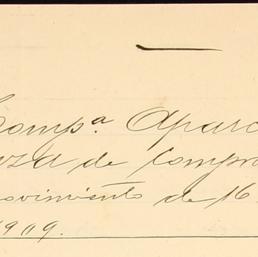 Compª. Aparc
nza de Compra
movimiento de 16
1909.